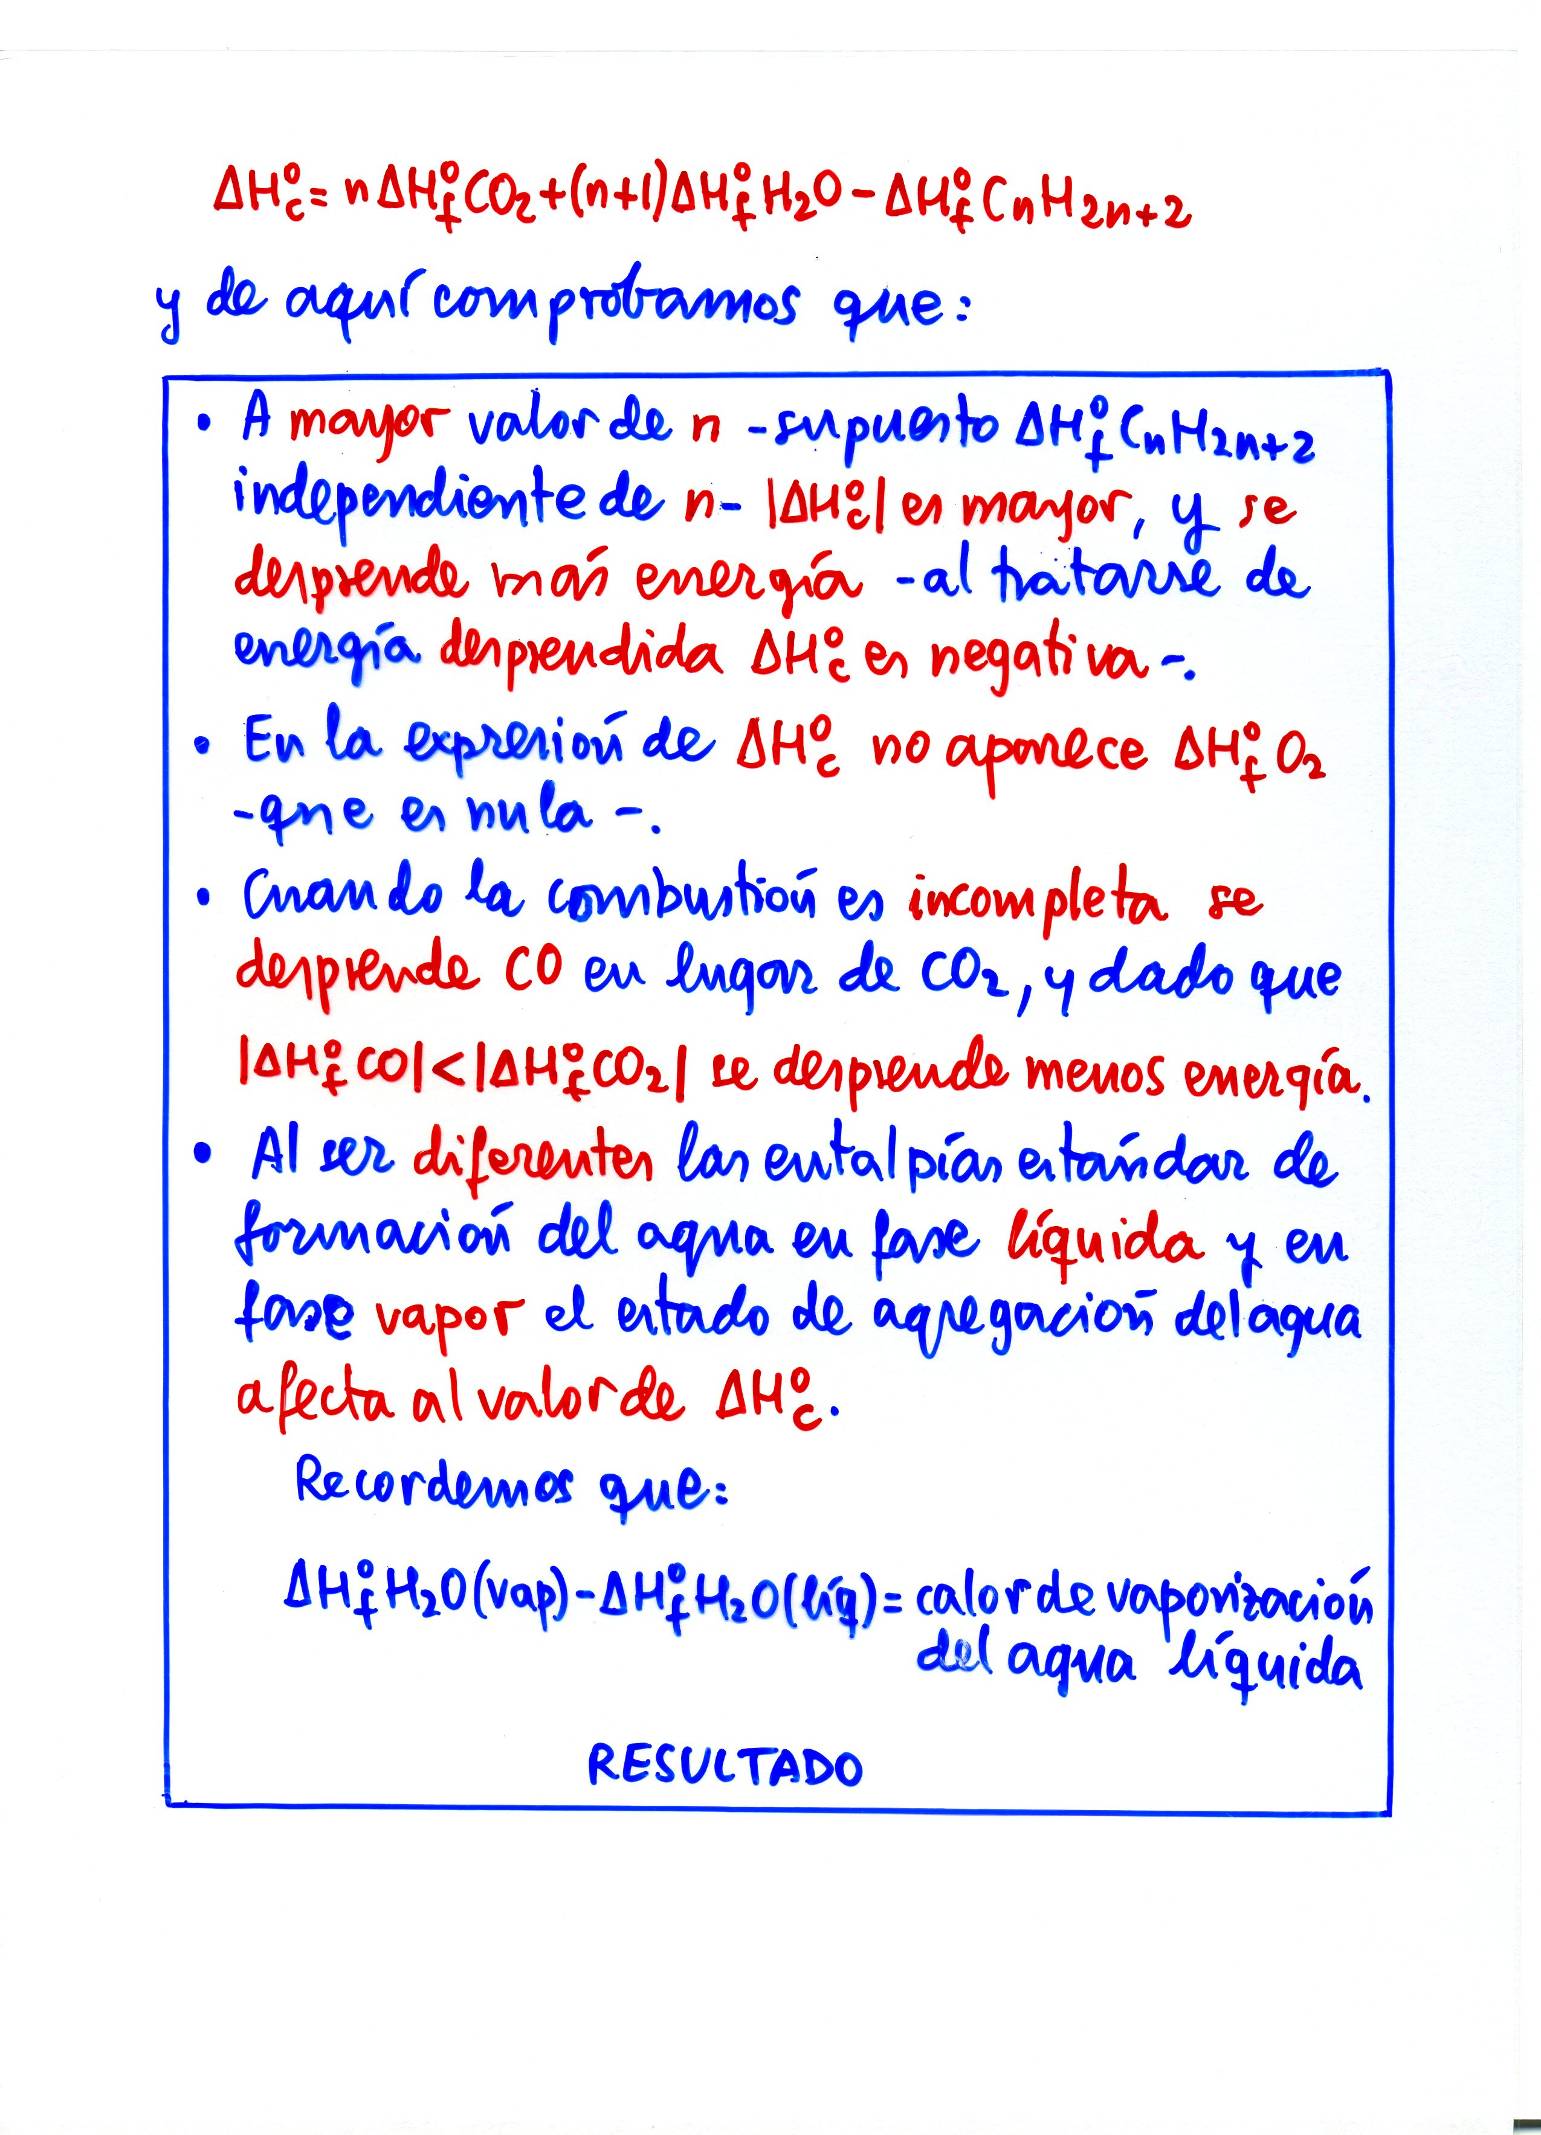 ΔH°c = nΔH°f CO₂ + (n+1)ΔH°f H₂O - ΔH°f CnH2n+2
y de aquí comprobamos que:
• A mayor valor de n - supuesto ΔH°f CnH2n+2
independiente de n - |ΔH°c| es mayor, y se
desprende más energía - al tratarse de
energía desprendida ΔH°c es negativa -.
• En la expresión de ΔH°c no aparece ΔH°f O₂
- que es nula -.
• Cuando la combustión es incompleta se
desprende CO en lugar de CO₂, y dado que
|ΔH°f CO| < |ΔH°f CO₂| se desprende menos energía.
• Al ser diferentes las entalpías estándar de
formación del agua en fase líquida y en
fase vapor el estado de agregación del agua
afecta al valor de ΔH°c.
Recordemos que:
ΔH°f H₂O(vap) - ΔH°f H₂O(líq) = calor de vaporización
del agua líquida
RESULTADO